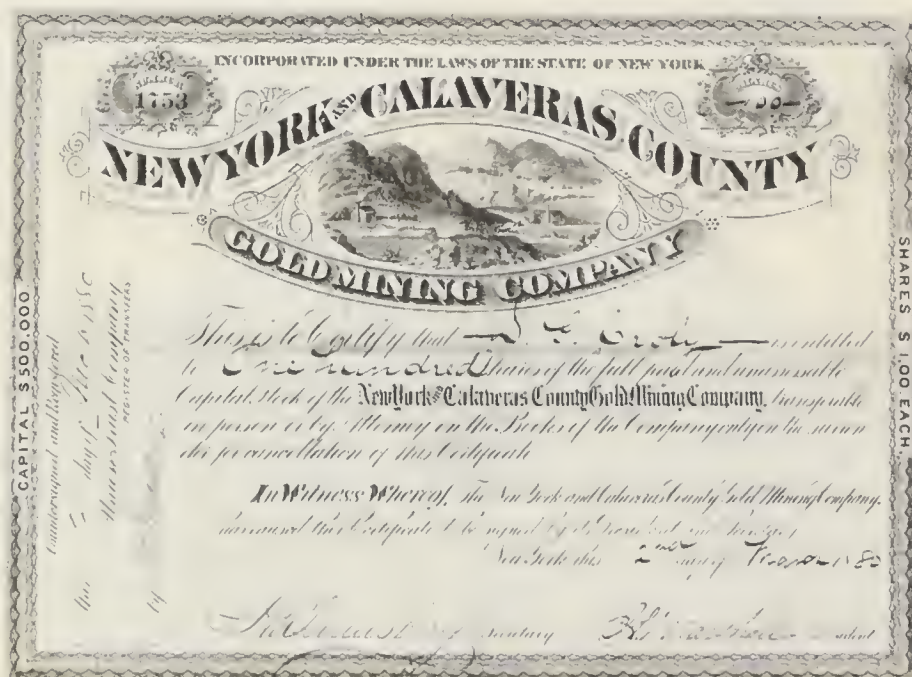 INCORPORATED UNDER THE LAWS OF THE STATE OF NEW YORK
NUMBER
1753
100
NEW YORK AND CALAVERAS COUNTY
GOLD MINING COMPANY
CAPITAL $500.000
SHARES $1.00 EACH.
Countersigned and Registered
this day of 1880
Company
REGISTER OF TRANSFERS
by
This is to Certify that is entitled
to One hundred shares of the full paid and unassessable
Capital Stock of the New York and Calaveras County Gold Mining Company, transferable
in person or by Attorney on the Books of the Company only on the surren
der for cancellation of this Certificate
In Witness Whereof, The New York and Calaveras County Gold Mining Company,
has caused this Certificate to be signed by its President and Secretary
New York this 2nd day of 1880
Secretary President